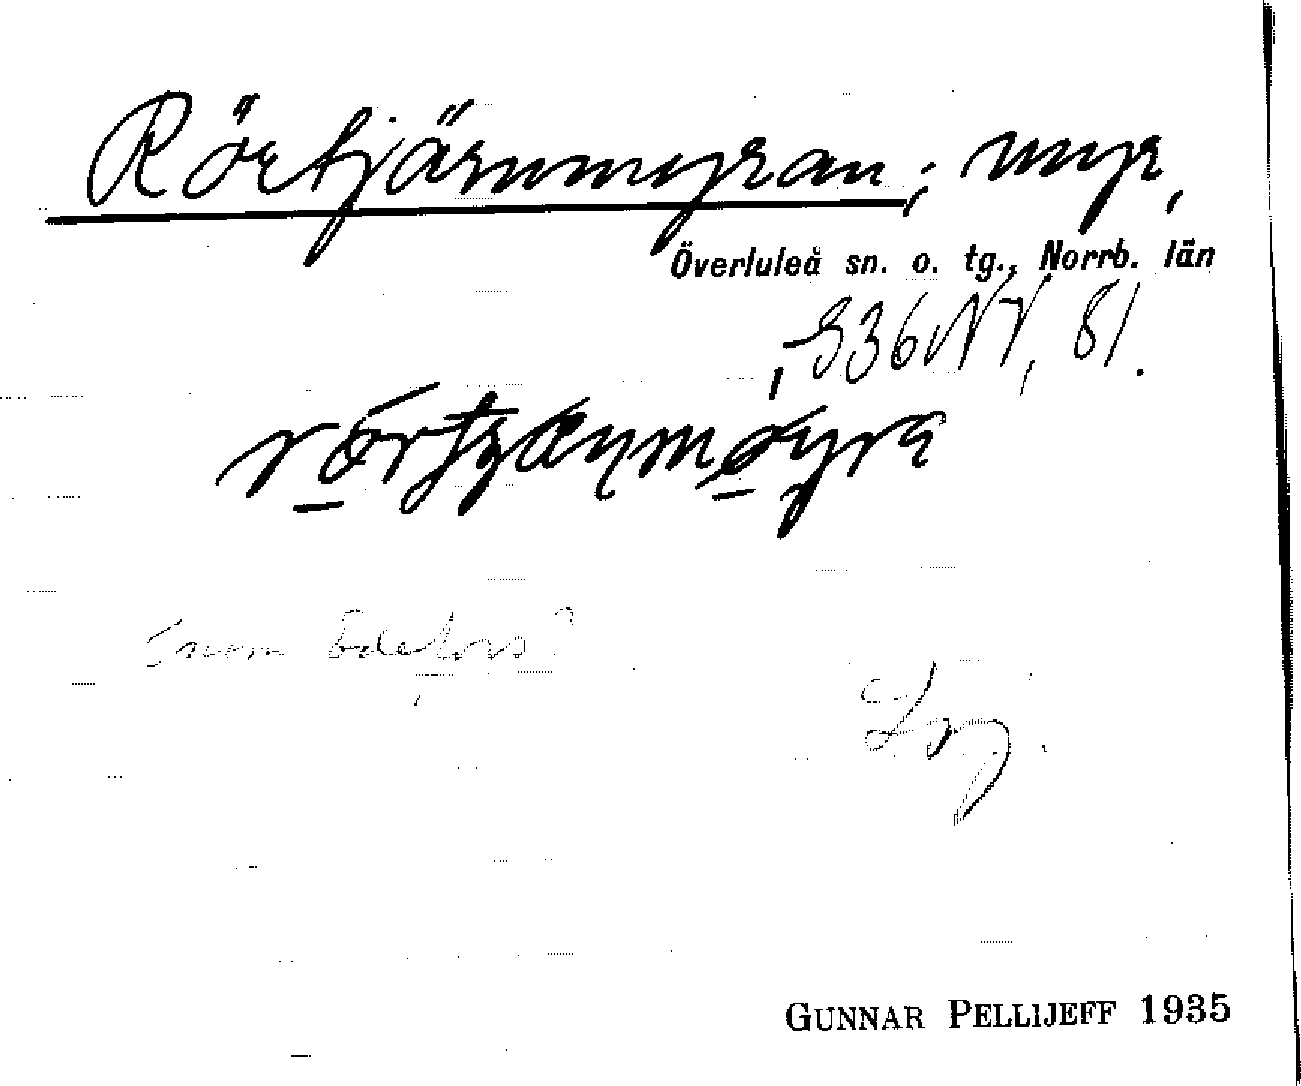 Rörtjärnmyran; myr,
Överluleå sn. o. tg., Norrb. län
, S36NV, 81.
Inom Edefors?
GUNNAR PELLIJEFF 1935